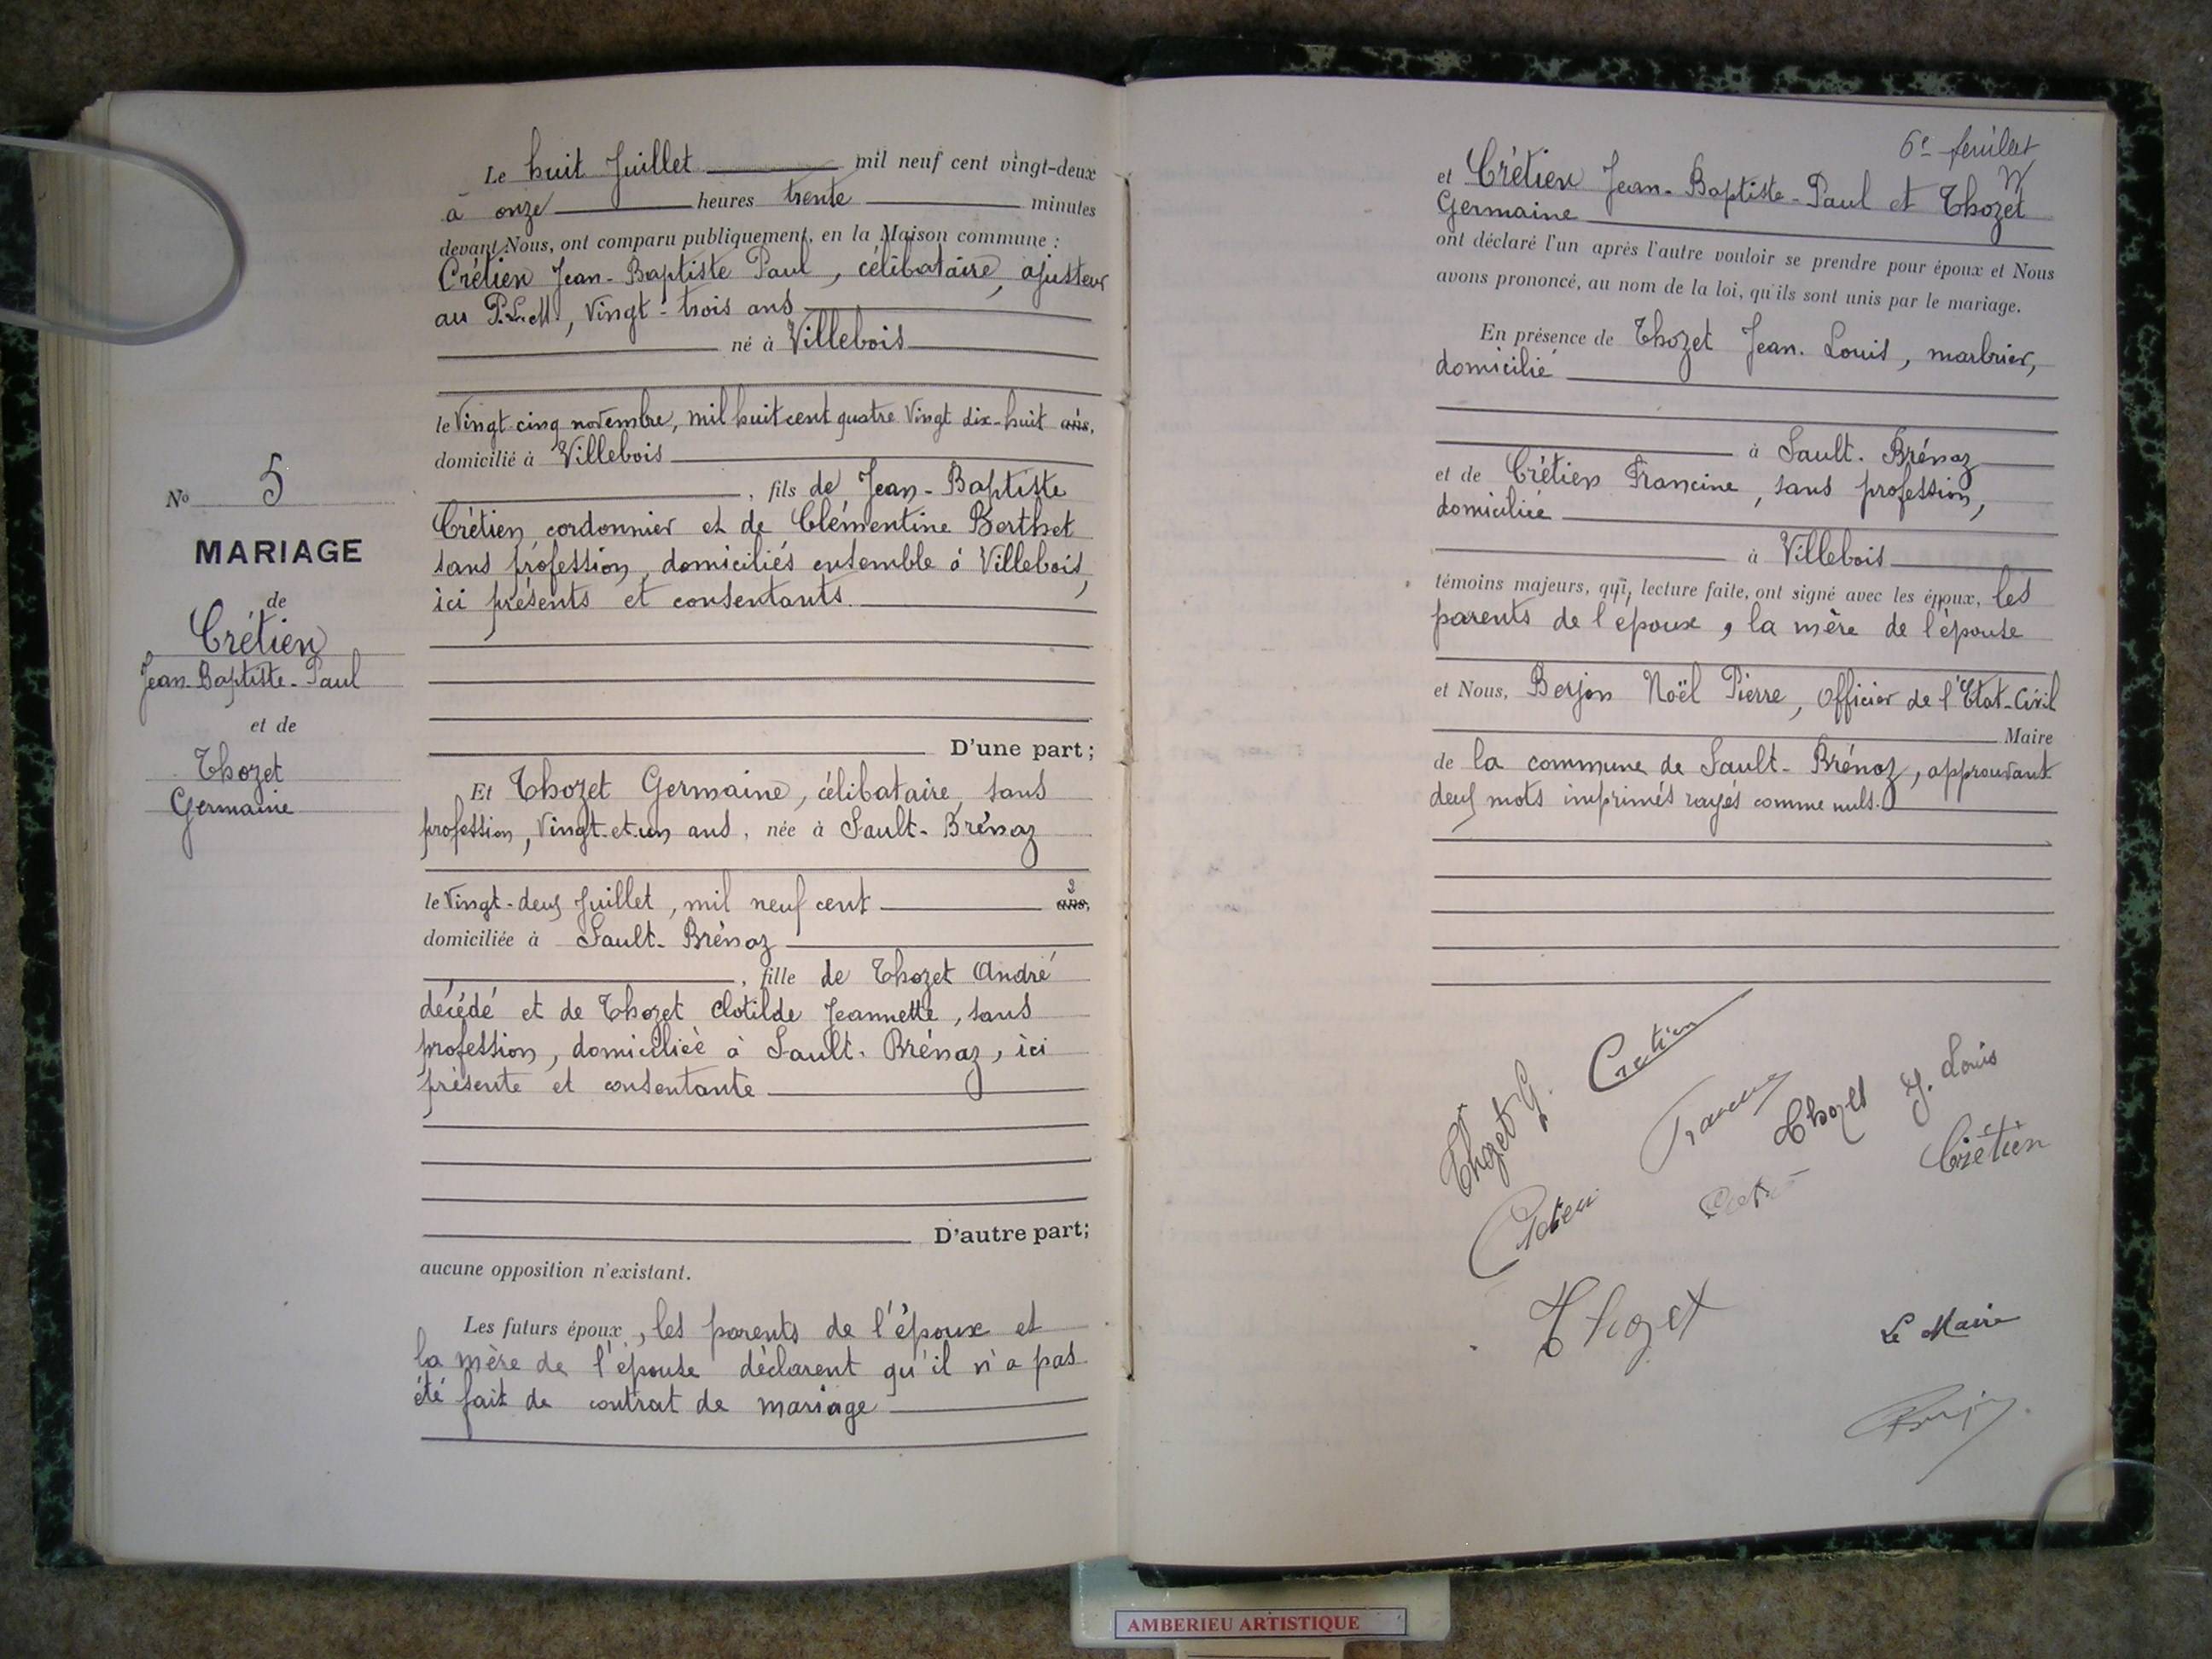 Le huit Juillet mil neuf cent vingt-deux
à onze heures trente minutes
devant Nous, ont comparu publiquement, en la Maison commune :
Crétien Jean-Baptiste Paul, célibataire, ajusteur
au P.L.M., Vingt-trois ans
né à Villebois
le Vingt cinq novembre, mil huit cent quatre Vingt dix-huit ans,
domicilié à Villebois
, fils de Jean-Baptiste
Crétien, cordonnier et de Clémentine Berthet
sans profession, domiciliés ensemble à Villebois,
ici présents et consentants.
D'une part;
Et Thozet Germaine, célibataire, sans
profession, Vingt-et-un ans, née à Sault-Brénaz
le Vingt-deux Juillet, mil neuf cent ans,
domiciliée à Sault-Brénaz
, fille de Thozet André
décédé et de Thozet Clotilde Jeannette, sans
profession, domiciliée à Sault-Brénaz, ici
présente et consentante
D'autre part;
aucune opposition n'existant.
Les futurs époux, les parents de l'époux et
la mère de l'épouse déclarent qu'il n'a pas
été fait de contrat de mariage
No 5
MARIAGE
de
Crétien
Jean-Baptiste-Paul
et de
Thozet
Germaine
6e feuillet
et Crétien Jean-Baptiste-Paul et Thozet
Germaine
ont déclaré l'un après l'autre vouloir se prendre pour époux et Nous
avons prononcé, au nom de la loi, qu'ils sont unis par le mariage.
En présence de Thozet Jean-Louis, marbrier,
domicilié
à Sault-Brénaz
et de Crétien Francine, sans profession,
domiciliée
à Villebois
témoins majeurs, qui, lecture faite, ont signé avec les époux, les
parents de l'époux, la mère de l'épouse
et Nous, Berjon Noël Pierre, Officier de l'Etat-Civil
Maire
de la commune de Sault-Brénaz, approuvant
deux mots imprimés rayés comme nuls.
Thozet G.
Cretien
Francine
Thozet J. Louis
Crétien
Thozet
Le Maire
Berjon
AMBERIEU ARTISTIQUE